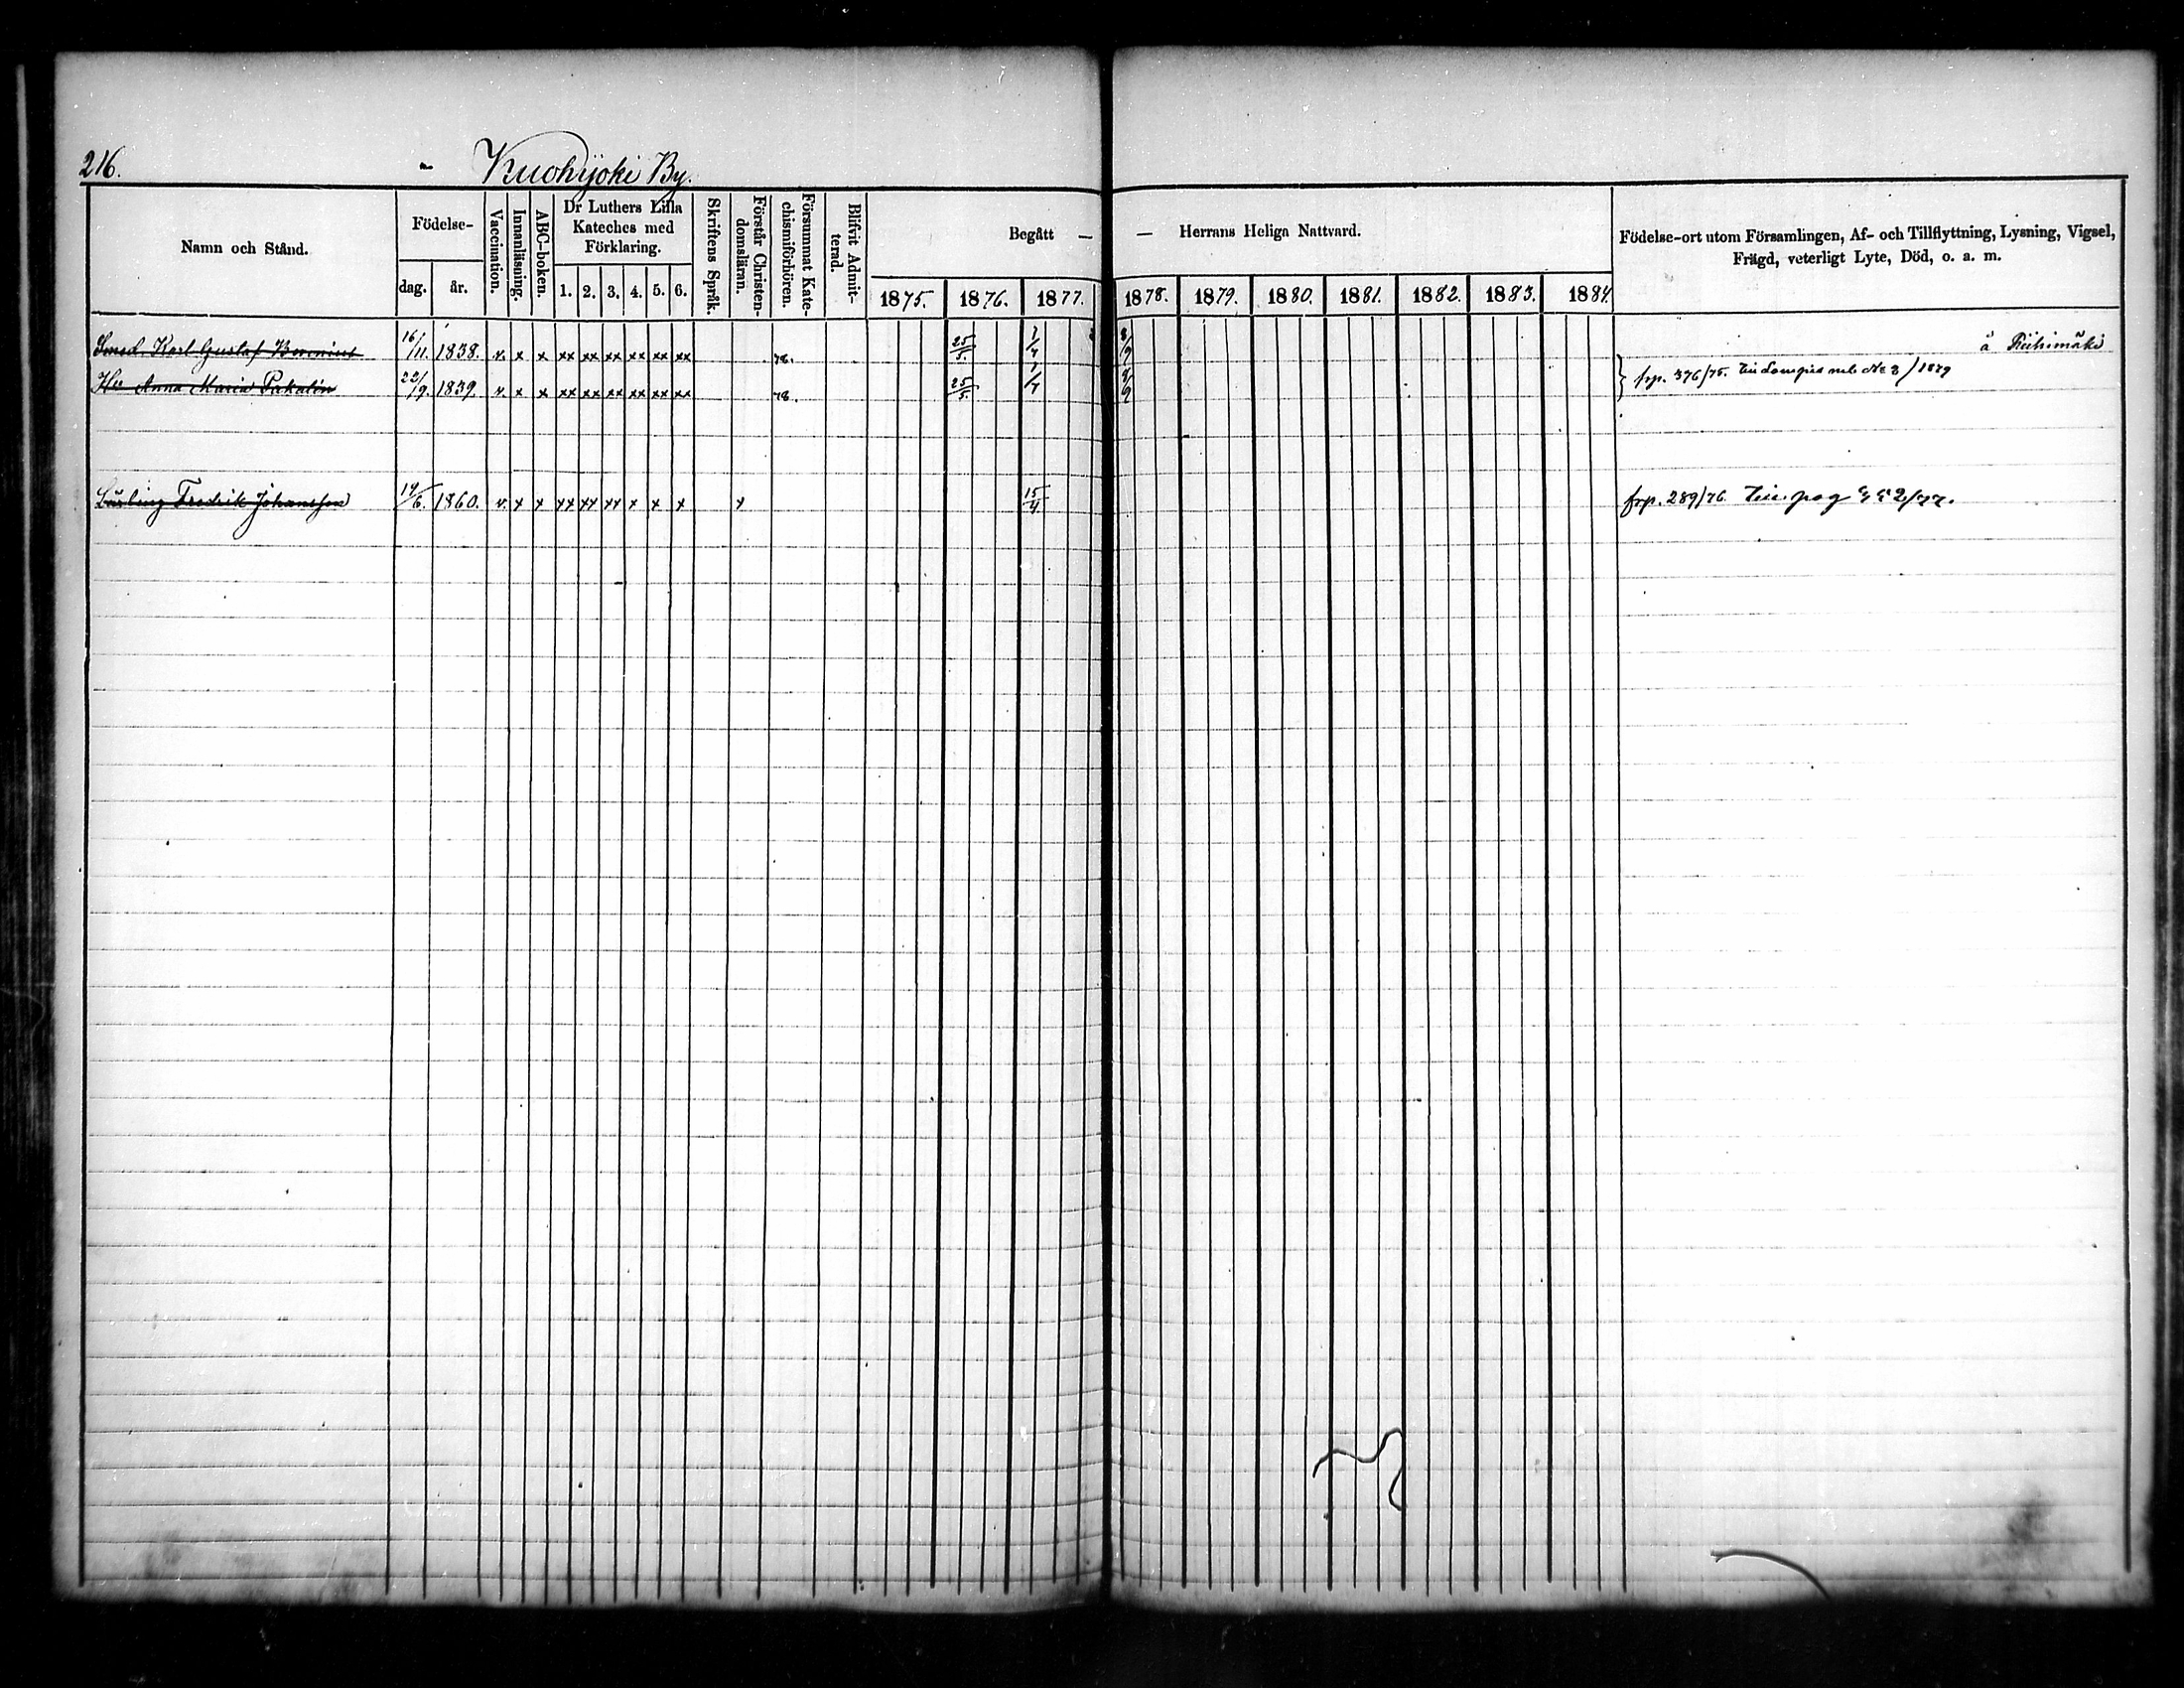 216.
Kuohijoki By.
Namn och Stånd.
Födelse-
dag.
år.
Vaccination.
Innanläsning.
ABC-boken.
Dr Luthers Lilla
Kateches med
Förklaring.
1. 2. 3. 4. 5. 6.
Skriftens Språk.
Förstår Christen-
domsläran.
Försummat Kate-
chismiförhören.
Blifvit Admit-
terad.
Begått — — Herrans Heliga Nattvard.
1875. 1876. 1877. 1878. 1879. 1880. 1881. 1882. 1883. 1884.
Födelse-ort utom Församlingen, Af- och Tillflyttning, Lysning, Vigsel,
Frägd, veterligt Lyte, Död, o. a. m.
Smed Karl Gustaf 16/11. 1838. v. x x xx xx xx xx xx xx 25/5. 1/7 8/9 å Riihimäki
Hu Anna Maria 22/9. 1839. v. x x xx xx xx xx xx xx 25/5. 1/7 8/9 frp. 376/75. 1879
Fredrik Johansson 14/6. 1860. v. x x xx xx xx x x x x 15/4 frp. 289/76. pag